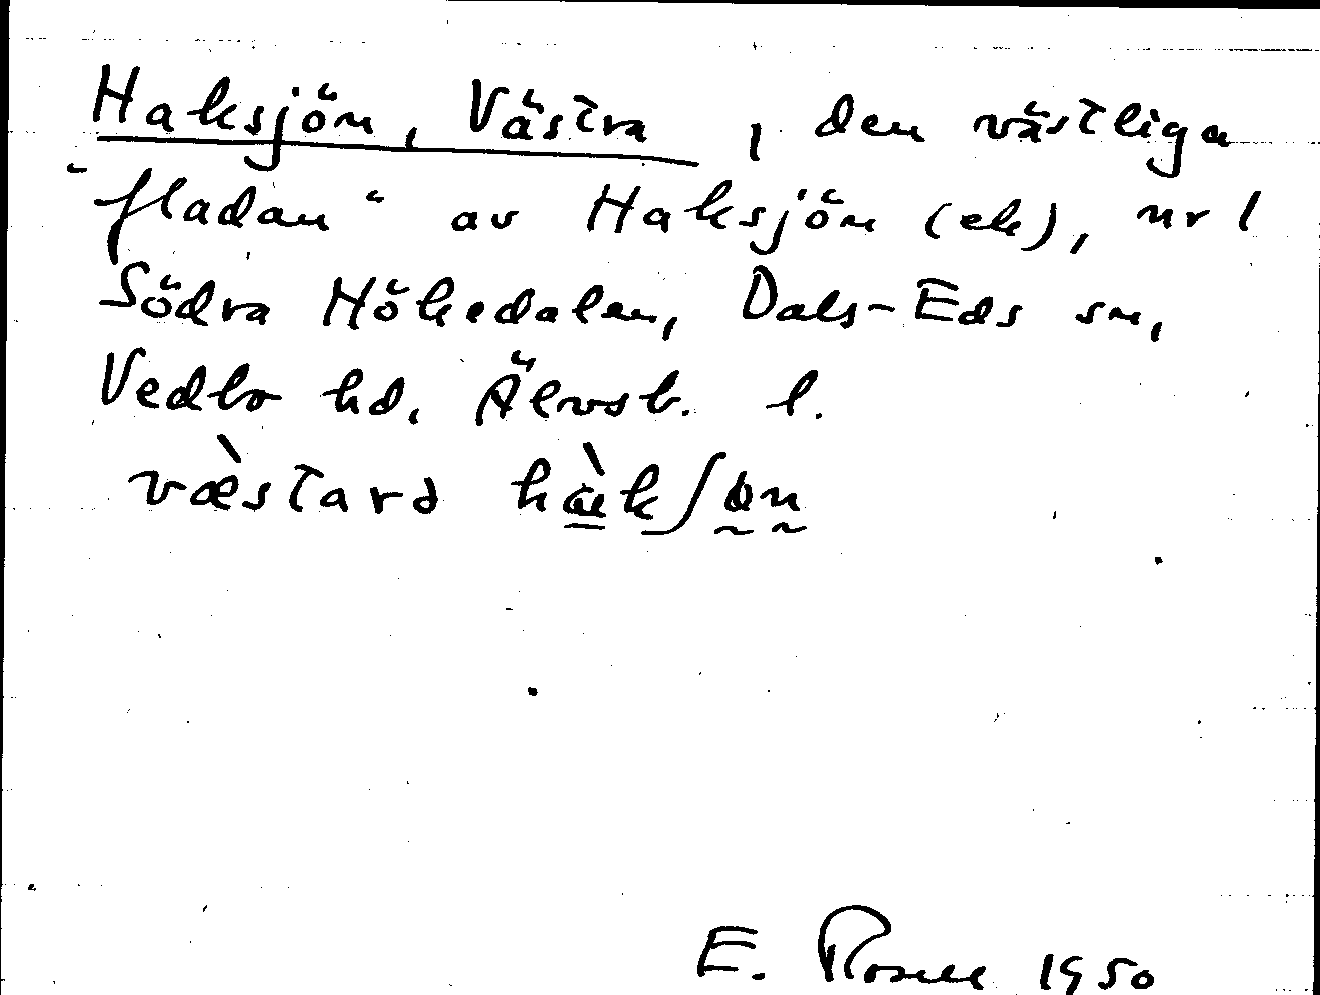 Haksjön, Västra, den västliga
"fladan" av Haksjön (ek), nr 1
Södra Hökedalen, Dals-Eds sn,
Vedbo hd. Älvsb. l.
væ̀stard
E. 1950